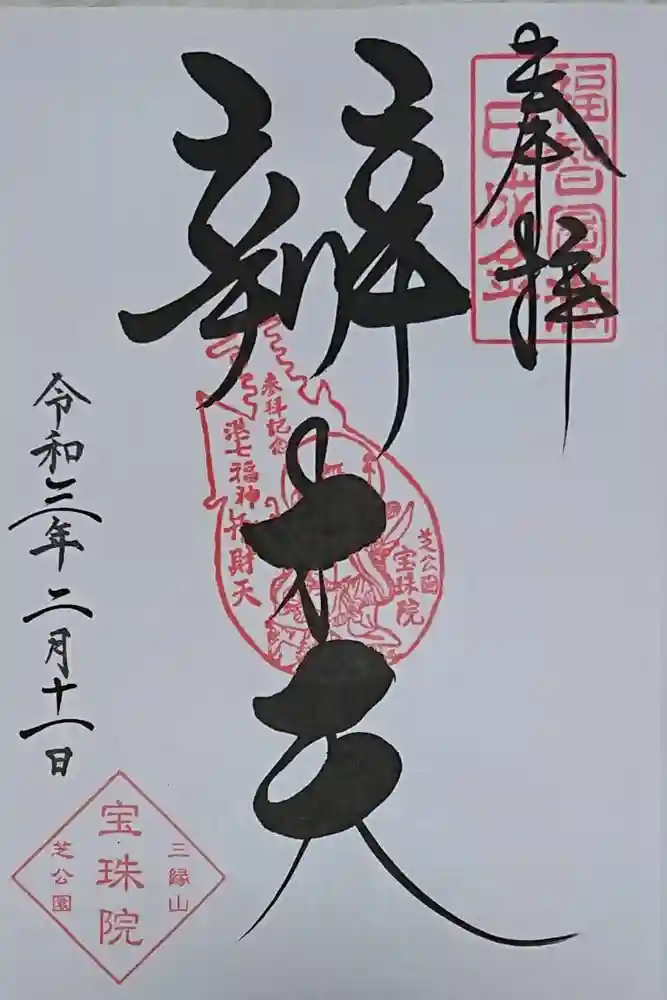 奉拝
福智円満
日成金
辨才天
参拝記念
港七福神弁財天
芝公園
宝珠院
令和三年二月十一日
三縁山
宝珠院
芝公園